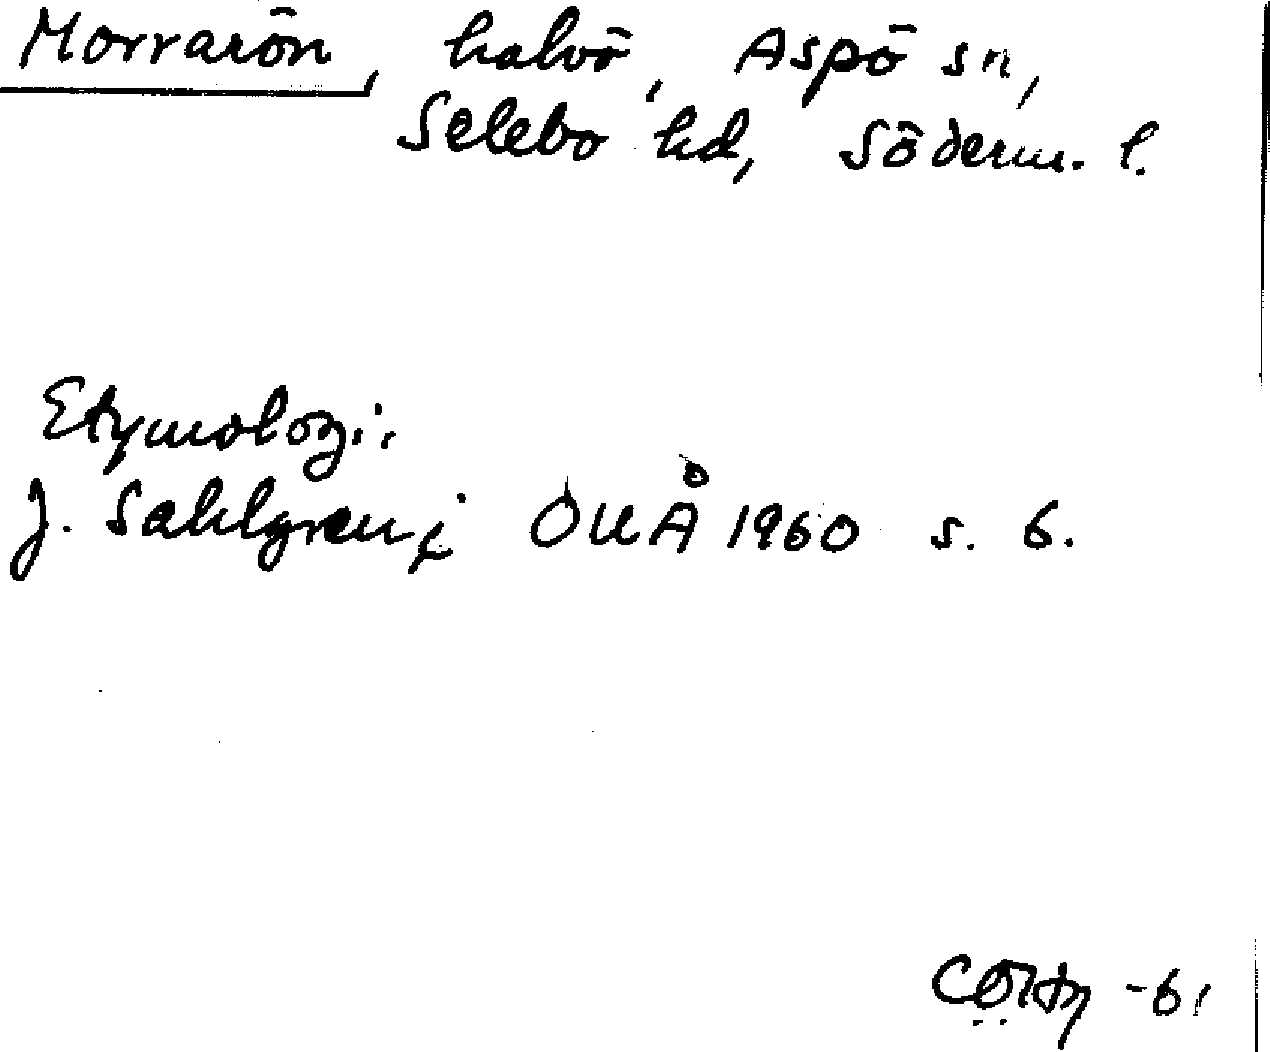 Morrarön, halvö, Aspö sn,
Selebo hd, Söderm. l.
Etymologi:
J. Sahlgren i OUÅ 1960 s. 6.
-61